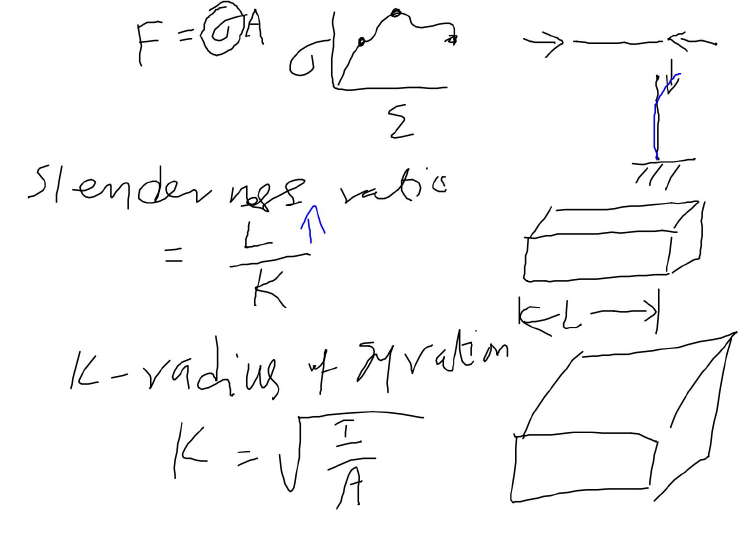 F = σA
σ
Σ
Slenderness ratio
= L / K
L
K - radius of gyration
K = √ I / A